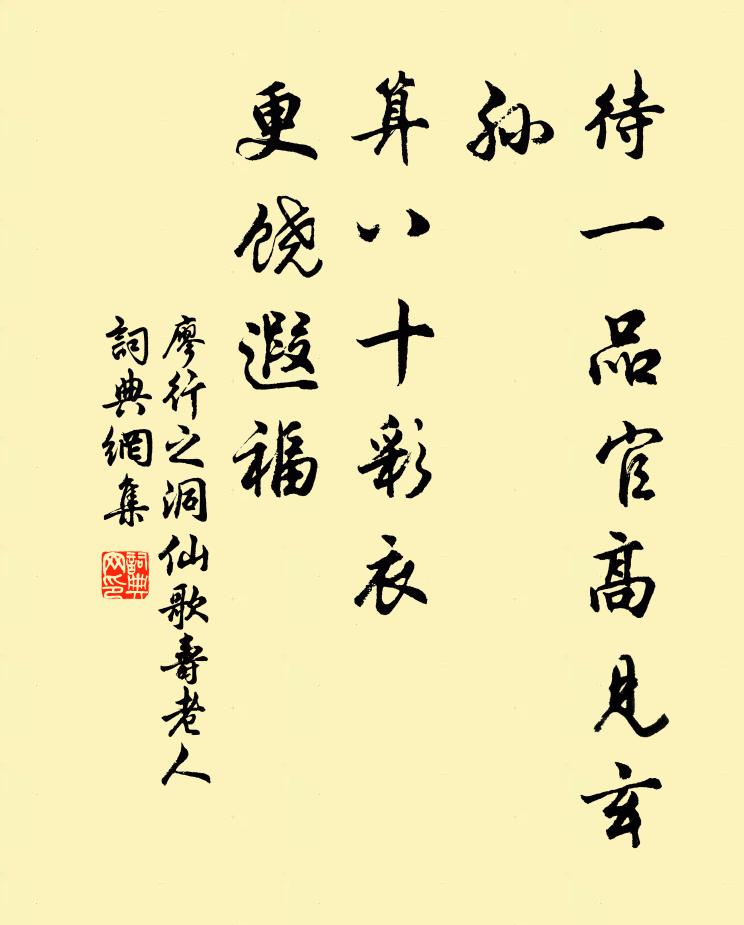 待一品官高見玄
孙
算八十彩衣
更饒遐福
廖行之洞仙歌壽老人
詞典網集
詞典網印